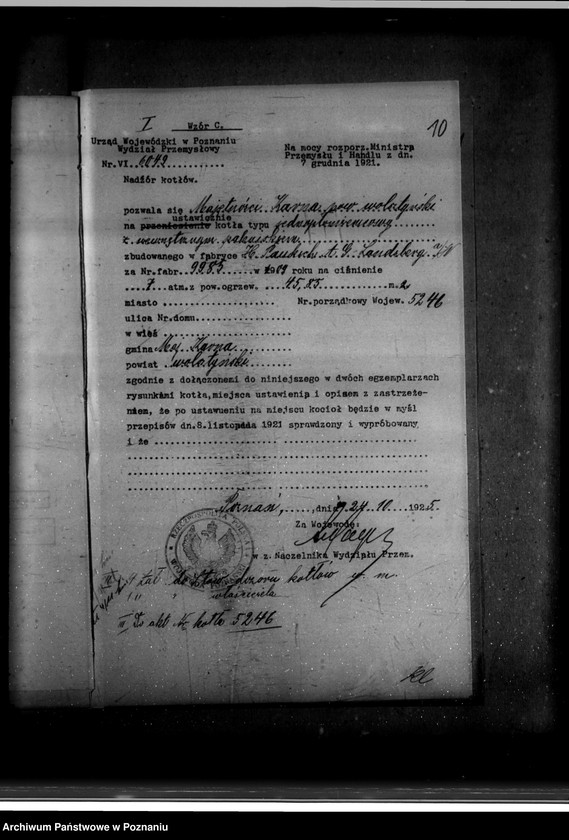 I Wzór C.
10
Urząd Wojewódzki w Poznaniu
Wydział Przemysłowy
Nr.VI 6042
Na mocy rozporz.Ministra
Przemysłu i Handlu z dn.
7 grudnia 1921.
Nadzór kotłów.
pozwala się Majętności Karna pow. wolsztyński
ustawienie
na przeniesienie kotła typu jednopłomienicowy
z wewnętrznym paleniskiem
zbudowanego w fabryce H. Pauksch A. G. Landsberg a/W
za Nr.fabr. 9985 w 1909 roku na ciśnienie
7 atm.z pow.ogrzew. 45,85 m.2
miasto Nr.porządkowy Wojew. 5246
ulica Nr.domu
w wieś
gmina Maj. Karna
powiat wolsztyński
zgodnie z dołączonemi do niniejszego w dwóch egzemplarzach
rysunkami kotła,miejsca ustawienia i opisem z zastrzeże-
niem, że po ustaweniu na miejscu kocioł będzie w myśl
przepisów dn.8.listopada 1921 sprawdzony i wypróbowany
i że
Poznań, dnia 24 10 1925.
Za Wojewodę:
w z. Naczelnika Wydziału Przez.
RZECZPOSPOLITA
zał. do Stow. dozoru kotłów w m.
" " właściciela
II Do akt Nr kotła 5246